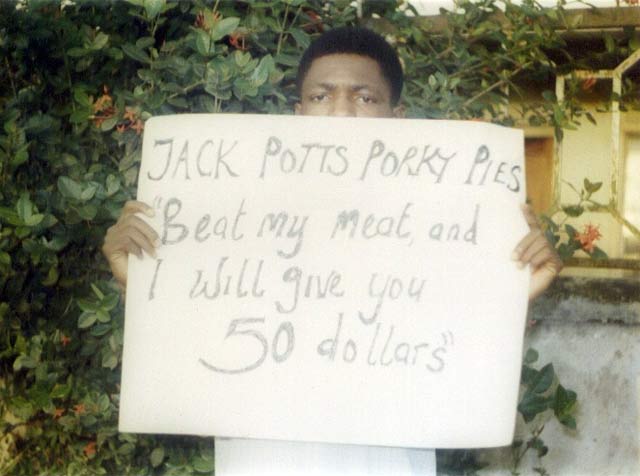 JACK POTTS PORKY PIES
"Beat my meat, and
I will give you
50 dollars"